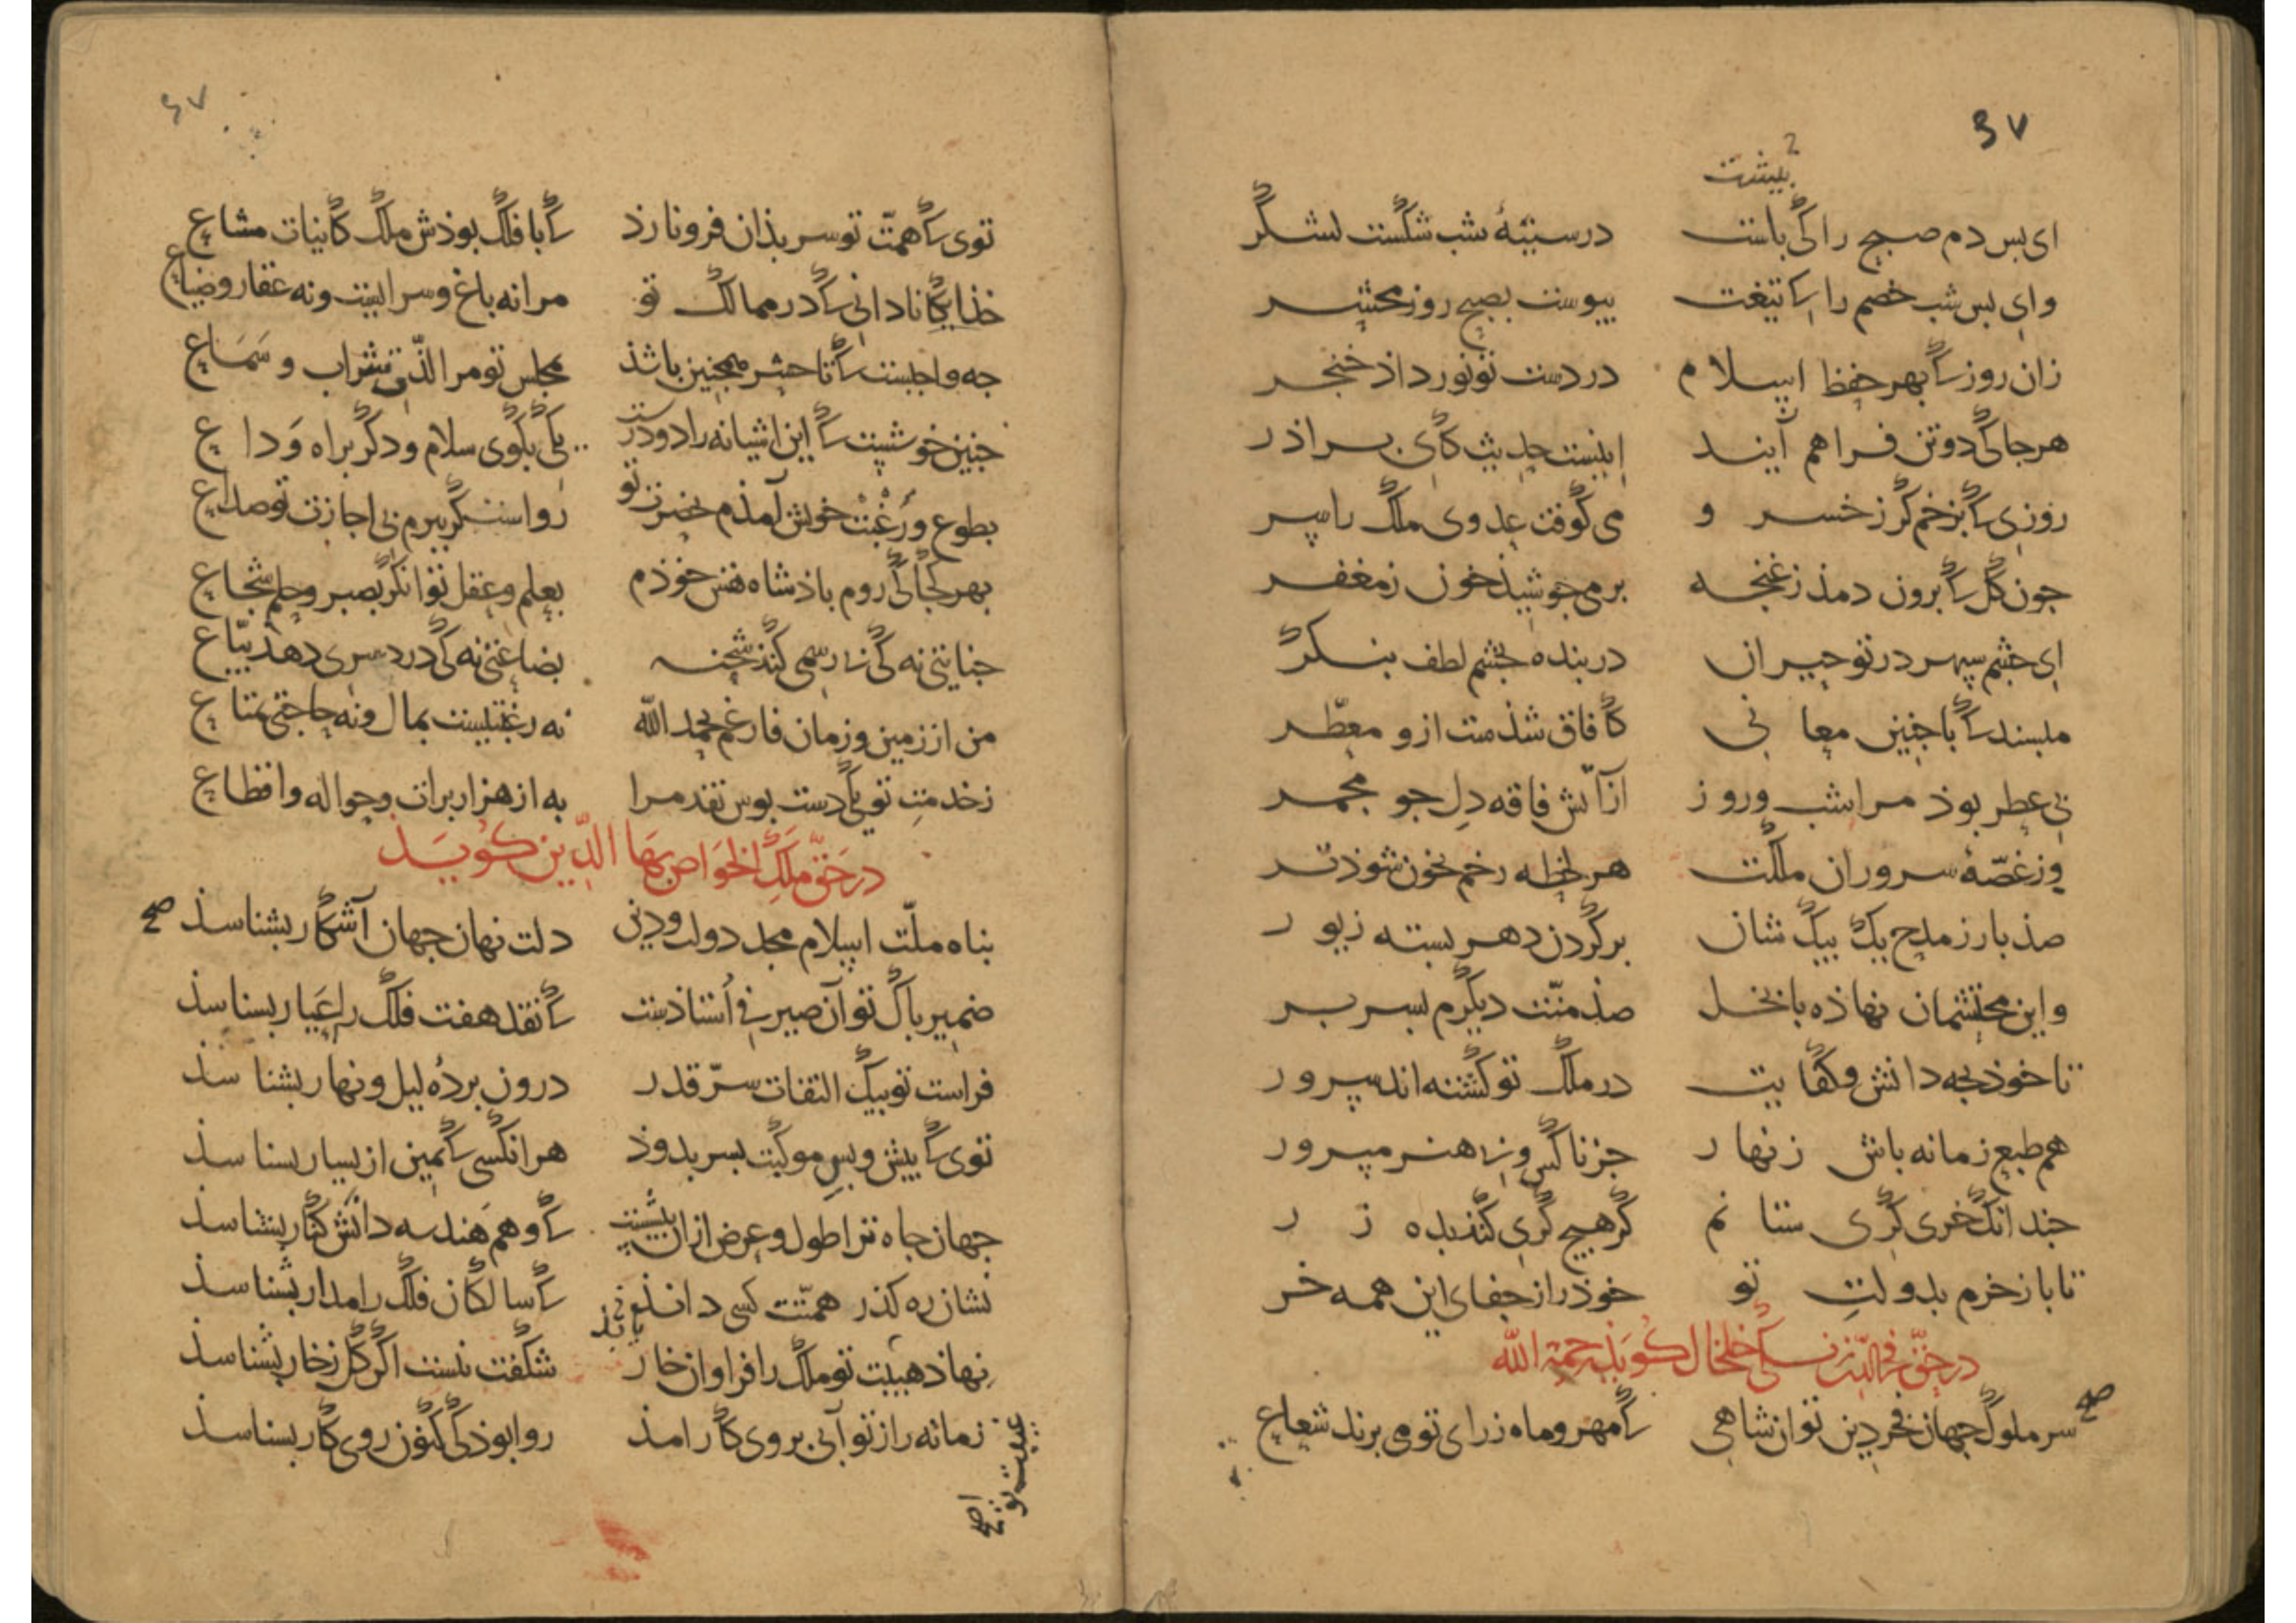 ٤٧
ببیشت
ای بس دم صبح را کی باست در سینهٔ شب شکست لشکر
وای بس شب خصم را کا تیغت پیوست بصبح روز محشر
زان روز کا بهر حفظ اسلام در دست تو نور داذ خنجر
هر جا کی دو تن فراهم آیند اینست حدیث کای براذر
روزی کا بزخم کرز خسرو می کوفت عدوی ملک را سر
جون کل کا برون دمذ ز غنجه بر می جوشیذ خون ز مغفر
ای جشم سپهر در تو حیران در بنده بجشم لطف بنکر
مپسند کا با جنین معانی کافاق شذست ازو معطر
بی عطر بوذ مرا شب و روز از آتش فاقه دل جو مجمر
وز غصهٔ سروران ملکت هر لحظه رخم بخون شوذ تر
صذ بار ز مدح یک بیک شان بر کردن دهر بسته زیور
واین محتشمان نهاذه با بخل صذ منّت دیکرم بسر بر
تا خوذ بجه دانش و کفایت در ملک تو کشته اند سرور
هم طبع زمانه باش زنهار جز ناکس و بی هنر مپرور
جندانک خری کری ستانم کر هیج کری کنذ بده زر
تا باز خرم بدولتِ تو خوذ را از جفای این همه خر
در حقّ فخر الدین زنکی خلخال کویذ رحمة الله
سر ملوک جهان فخر دین توان شاهی کا مهر و ماه ز رای تو می برند شعاع
صح
٤٧
توی کا همّت تو سر بذان فرو نارذ کا با فلک بوذش ملک کاینات مشاع
خذایکانا دانی کا در ممالک تو مرا نه باغ و سراییست و نه عقار و ضیاع
جه واجبست کا تا حشر همجنین باشذ مجلس تو مرا لذّتی شراب و سَمَاع
جنین خوشیست کا این اشیانه را دو درست یکی بکوی سلام و دکر براه وَداع
بطوع و رُغْبَتْ خویش آمذم بحضرت تو رواست کر ببرم بی اجازت تو صداع
بهر کجا کی روم باذشاه نفس خوذم بعلم و عقل توانکر بصبر و حلم شجاع
جنایتی نه کی بی رسمی کنذ شحنه بضاعتی نه کی درد سری دهذ بیّاع
من از زمین و زمان فارغم بحمد الله نه رغبتیست بمال و نه حاجتی بمتاع
ز خدمتِ تو یکی دست بوس نقد مرا به از هزار برات و حواله و اقطاع
در حَقّ مَلَک الخوَاص بَهَا الدّین کویَذ
بناه ملّت اسلام مجد دولت و دین دلت نهان جهان آشکار بشناسذ صح
ضمیر باک تو آن صیرفی اُستاذست کا نقد هفت فلک را عَیار بشناسذ
فراست تو بیک التفات سرّ قدر درون بردهٔ لیل و نهار بشناسذ
توی کا بیش و بس موکبت بسر بدوذ هر انکسی کا یمین از یسار بشناسذ
جهان جاه ترا طول و عرض ازان بیشست کا وهم هندسه دانش کنار بشناسذ
نشان ره کذر همّتت کسی دانذ کا سالکان فلک را مدار بشناسذ
نهاذ هیبت تو ملک را فراوان خار شکفت نیست اکر کل ز خار بشناسذ
زمانه را ز تو آبی بروی کار امذ روا بوذ کی کنون روی کار بشناسذ